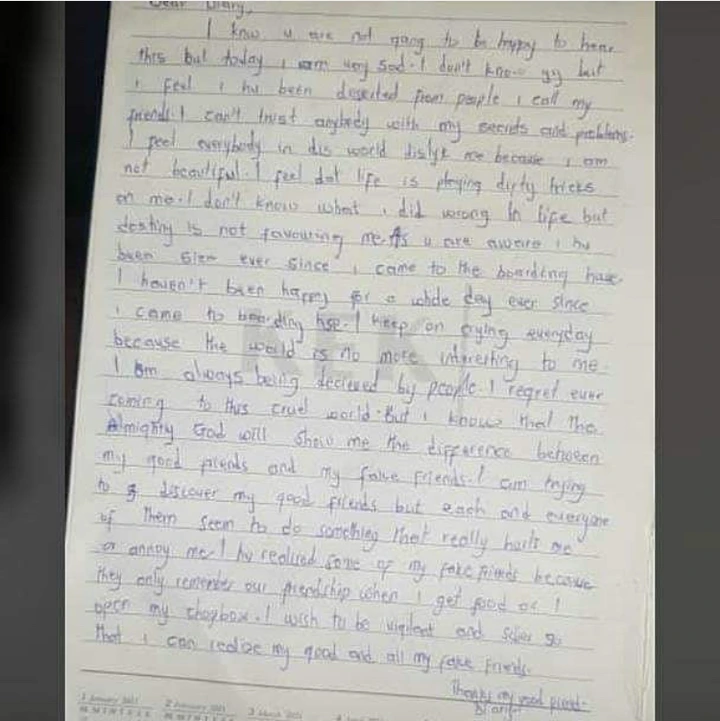 Dear Diary,
I know u are not gong to be happy to hear
this but today i am very sad. I don't know yy but
i feel i hv been deserted from people i call my
friends. I can't trust anybody with my secrets and problems.
I feel everybody in dis world dislyk me because i am
not beautiful. I feel dat life is playing dirty tricks
on me. I don't know what i did wrong in life but
destiny is not favouring me. As u are aware i hv
been ever since i came to the boarding
I haven't been happy for a whole day ever since
i came to boarding hse. I keep on crying everyday
because the world is no more interesting to me.
I am always being decieved by people. I regret ever
coming to this cruel world. But i know that the
Almighty God will show me the difference between
my good friends and my fake friends. I am trying
to discover my good friends but each and everyone
of them seem to do something that really hurts me
or annoy me. I hv realized some of my fake friends because
they only remember our friendship when I get food or I
open my chopbox. I wish to be vigilant and so
that i can realize my good and all my fake friends.
Thanks my good friend-
1 January 2021
2 January 2021
2021